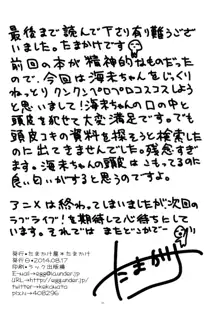 最後まで読んで下さり有り難うござ
いました。たまかけです
前回の本が精神的なものだったの
で、今回は海未ちゃんをじっくり
ねっとりクンクンペロペロコスコスしよう
と思いまして!海未ちゃんの口の中と
頭皮を犯せて大変満足です。でも
頭皮コキの資料を探そうと検索した
のに出てきませんでした。残念すぎ
ます。海未ちゃんの頭皮はこもってるのに
良い匂いがすると思うのですよ。
アニメは終わってしまいましたが次回の
ラブライブ!を期待して心待ちとして
います。それではまたどこかでー
たまかけ
発行*たまかけ屋*たまかけ
発行日*2014.08.17
印刷*ラック出版様